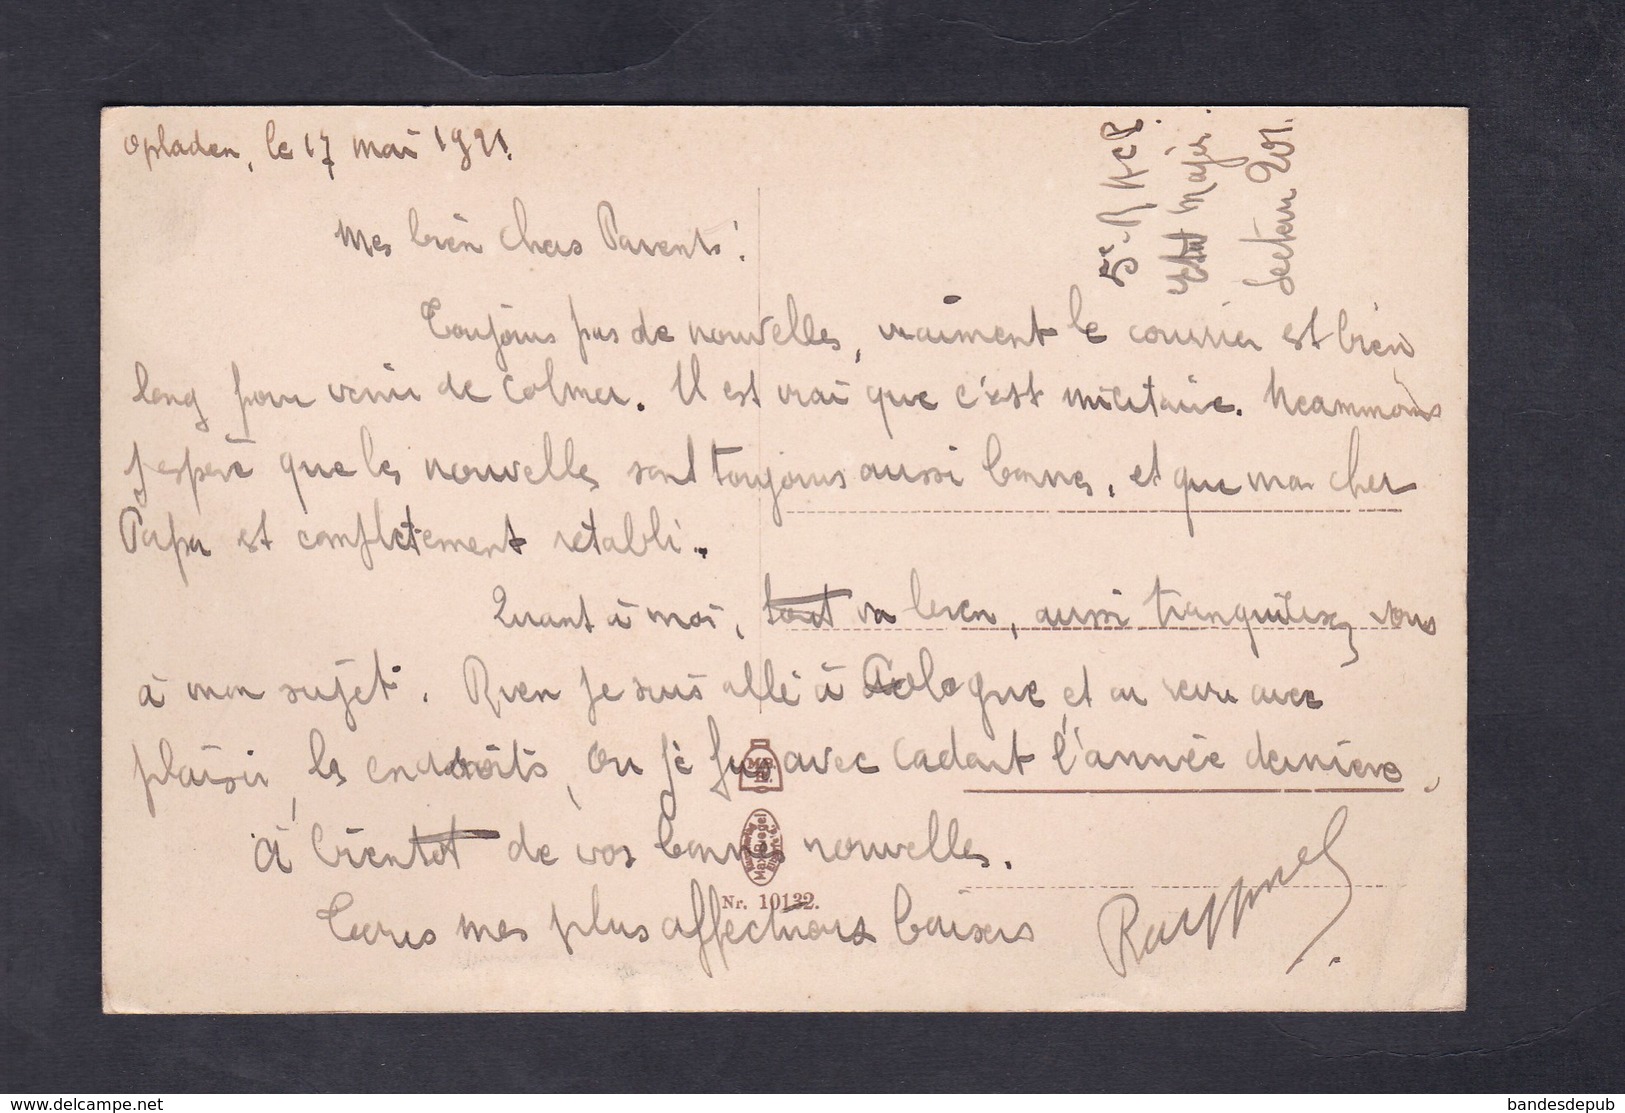 Opladen, le 17 mai 1921.
5e R A C P.
Etat Major.
Secteur 201.
Mes bien chers Parents!
Toujours pas de nouvelles, vraiment le courrier est bien
long pour venir de Colmar. Il est vrai que c'est militaire. Neammoins
j'espère que les nouvelles sont toujours aussi bonnes, et que mon cher
Papa est complètement rétabli.
Quant à moi, tout va bien, aussi tranquilisez vous
à mon sujet. Rien je suis allé à Cologne et ai revu avec
plaisir, les endroits, ou je fus avec Cadart l'année dernière,
à bientot de vos bonnes nouvelles.
mes plus affectueux baisers
Raymond
M.B.
B.
Kunstverlag
Max Biegel
Nr. 10132.
bandesdepub
www.delcampe.net